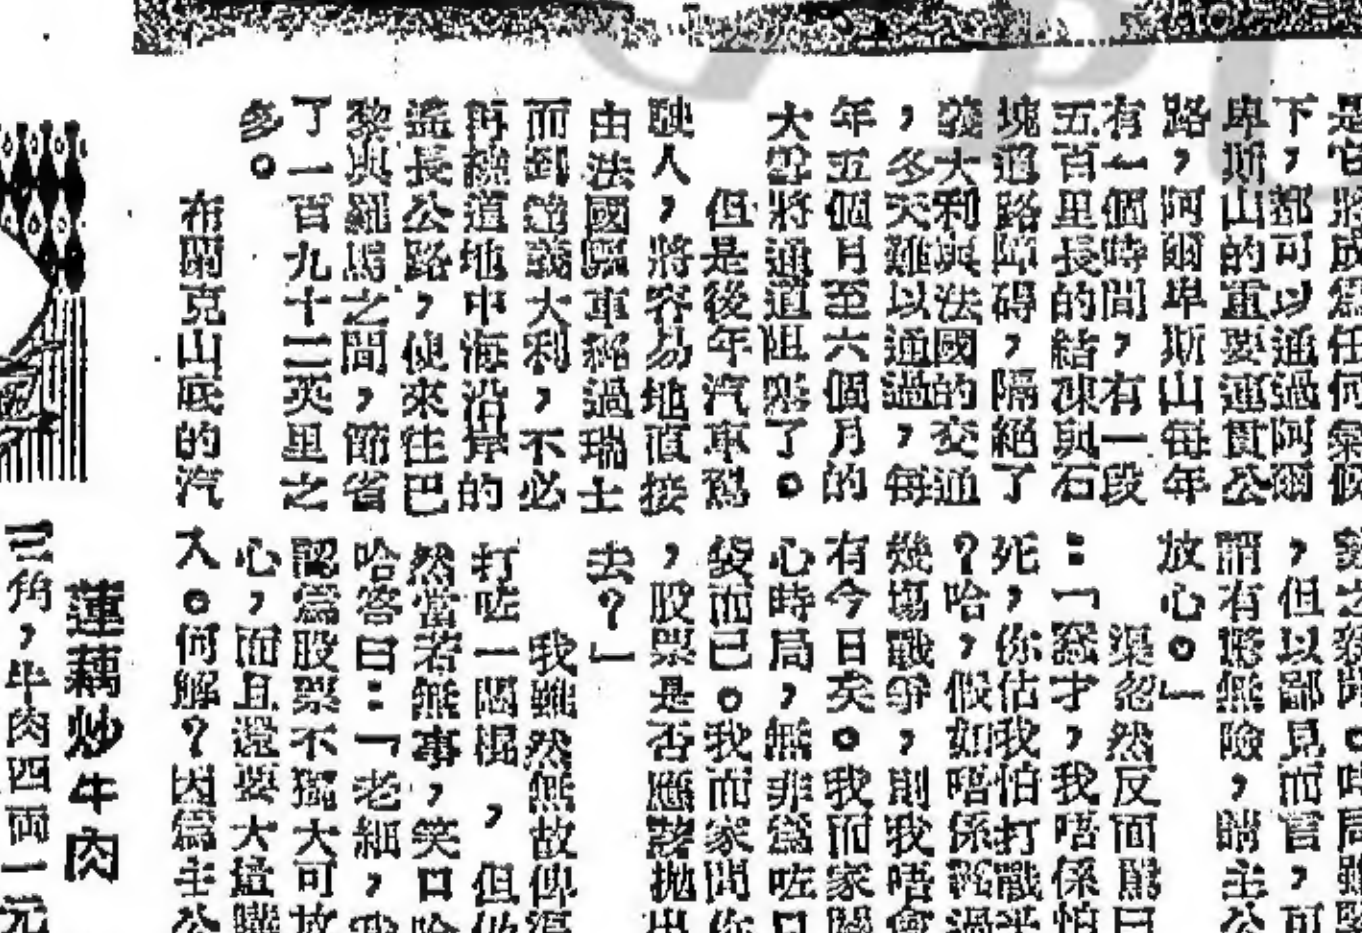 是它將成爲任何氣候
下，都可以通過阿爾
卑斯山的重要運貫公
路，阿爾卑斯山每年
有一個時間，有一段
五百里長的結凍與石
塊道路障碍，隔絕了
義大利與法國的交通
，多天難以通過，每
年五個月至六個月的
大雪將通道阻塞了。
但是後年汽車駕
駛人，將容易地直接
由法國驅車經過瑞士
而到達義大利，不必
再繞道地中海沿岸的
遙長公路，使來往巴
黎與羅馬之間，節省
了一百九十二英里之
多。
布蘭克山底的汽
，但以鄙見而言，可
謂有驚無險，請主公
放心。」
渠忽然反面罵曰
：「蠢才，我唔係怕
死，你估我怕打戰乎
？哈，假如唔係經過
幾場戰爭，則我唔會
有今日矣。我而家關
心時局，無非爲咗日
後而已。我而家問你
，股票是否應該拋出
去？」
我雖然無故俾渠
打咗一悶棍，但仍
然當若無事，笑口哈
哈答曰：「老細，我
認爲股票不獨大可放
心，而且還要大搵購
入。何解？因爲主公
蓮藕炒牛肉
角，牛肉四両一元